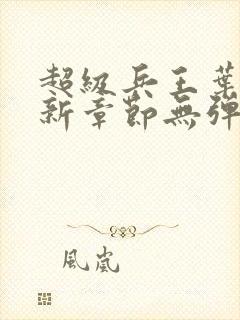 超級兵王葉
新章節無彈
風嵐